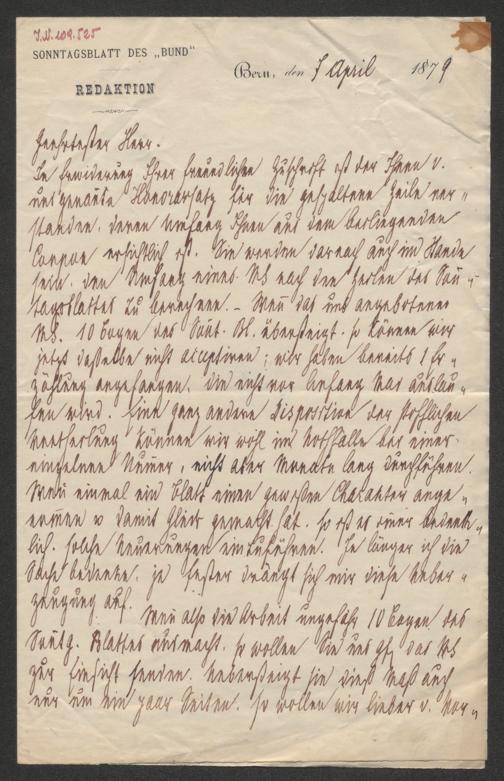 I.N. 109.525
SONNTAGSBLATT DES „BUND"
REDAKTION
Bern, den 7 April 1879
Geehrtester Herr.
In Erwiderung Ihrer freundlichen Zuschrift ist der Ihnen v.
uns genannte Honorarsatz für die gespaltene Zeile ver„
standen, deren Umfang Ihnen aus dem beiliegenden
Coupon ersichtlich ist. Sie werden darnach auch im Stande
sein, den Umfang eines MS nach den Zeilen des Son„
tagsblattes zu berechnen. – Wenn das uns angebotene
MS. 10 Bogen des Sont. Bl. übersteigt, so können wir
jetzt dasselbe nicht acceptiren; wir haben bereits 1 Er„
zählung angefangen, die nicht vor Anfang Mai auslau„
fen wird. Eine ganz andere Disposition der stofflichen
Vertheilung können wir wohl im Nothfalle bei einer
einzelnen Numer, nicht aber Monate lang durchführen.
Wenn einmal ein Blatt einen gewissen Charakter ange„
nomen u damit Glück gemacht hat, so ist es immer bedenk„
lich, solche Neuerungen einzuführen. Je länger ich die
Sache bedenke, je fester drängt sich mir diese Ueber„
zeugung auf. Wenn also die Arbeit ungefähr 10 Bogen des
Sontg. Blattes ausmacht, so wollen Sie uns gf. das MS
zur Einsicht senden. Uebersteigt sie dieß Maß auch
nur um ein paar Seiten, so wollen wir lieber v. Vor„